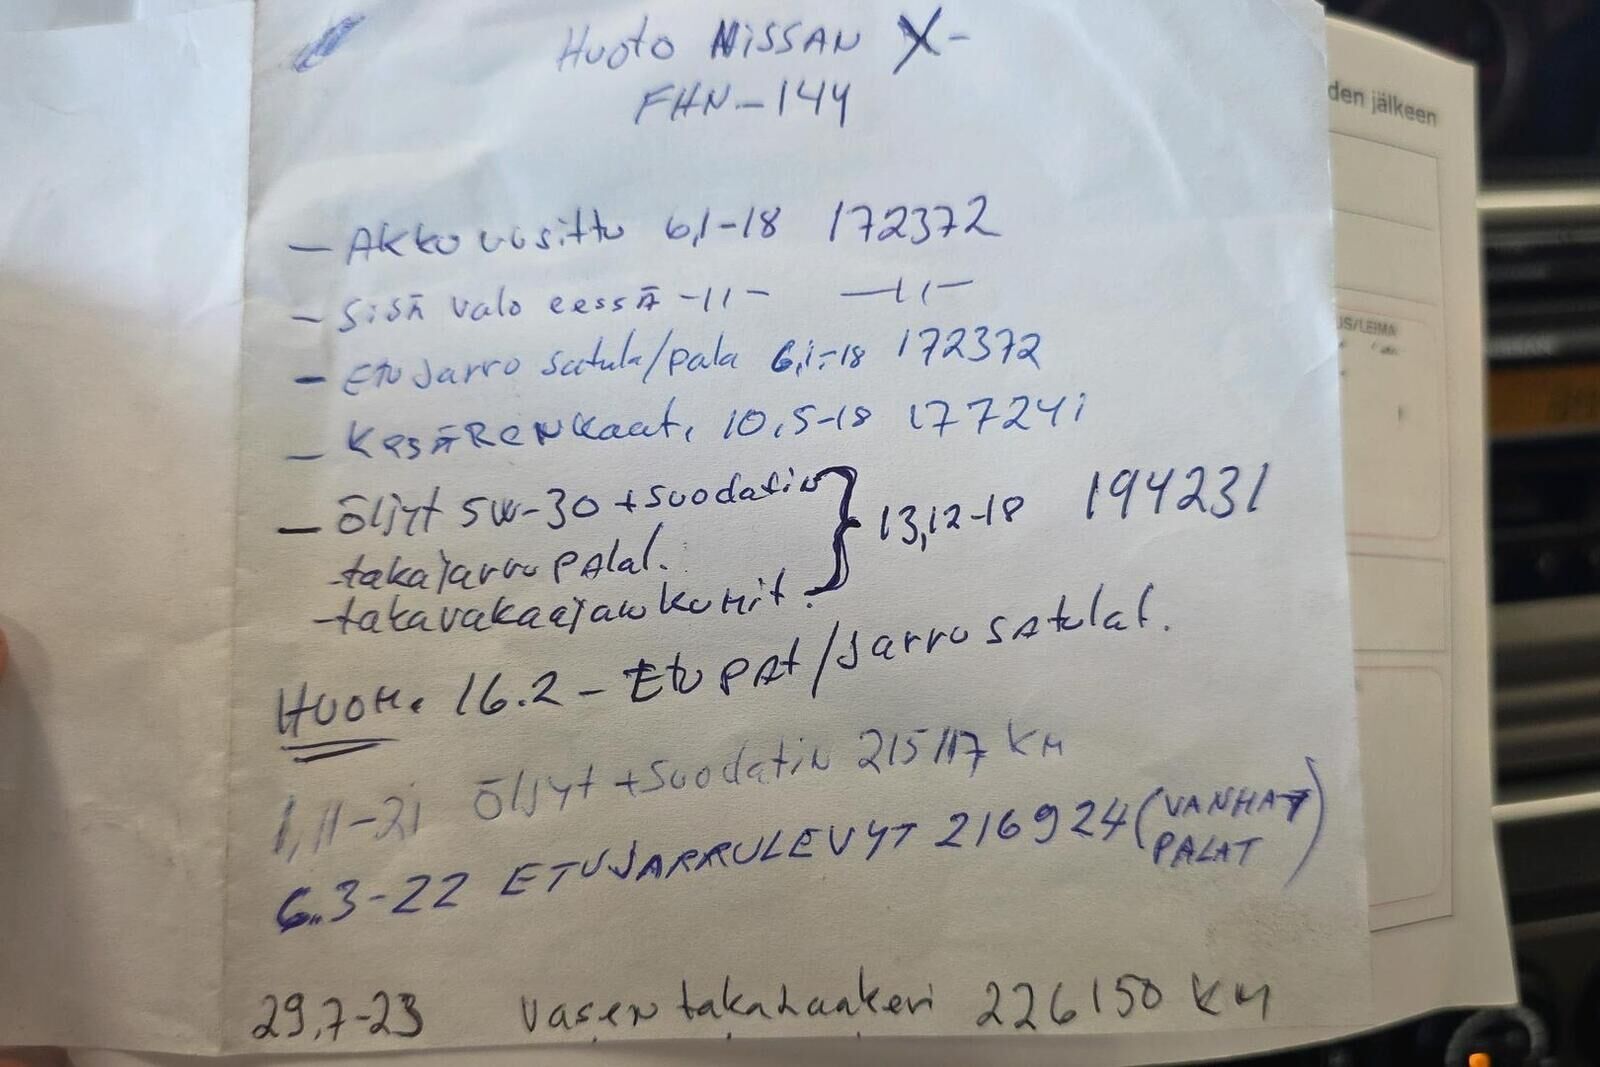 Huoto NISSAN X-
FHN-144
den jälkeen
- Akku uusittu 6,1-18 172372
- Sisä valo eessä -11- -11-
US/LEIMA
- Etujarru satula/pala 6,1-18 172372
- Kesärenkaat, 10,5-18 177241
- Öljyt 5W-30 + suodatin
takajarru palat.
- takavakaajan kumit. } 13,12-18 194231
HUOM. 16.2 - Etupat/jarru satulat.
1,11-21 Öljyt + suodatin 215117 KM
6.3-22 ETUJARRULEVYT 216924 (VANHAT
PALAT)
29,7-23 vasen takalaakeri 226150 KM